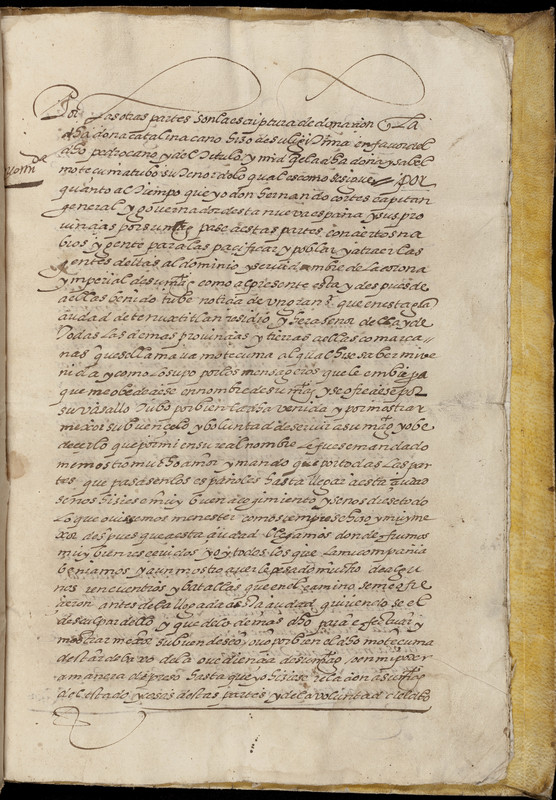 Por las otras partes son la escriptura de donacion La
dha doña catalina cano hizo de su legitima en favor del
dho pedro cano y del Titulo y mrd qe la dha doña ysabel
motecuma tubo su Tenor de lo qual es como se sigue // por
quanto al Tiempo que yo don hernando cortes capitan
general y governador desta nueva españa y sus pro
vincias por su mag pase a estas partes con ciertos na
bios y gente para las pacificar y poblar y atraer las
gentes dellas al dominio y servidumbre de la corona
ymperial de su mag como al presente esta y despues de
a ellas benido tube noticia de un gran sr que en esta gra
ciudad de tenuxtitlan residio y hera señor della y de
Todas las demas provincias y tierras a ellas comarca //
nas que se llamava motecuma al qual hize saber mi ve
nida y como lo supo por los mensageros que le embie pa
que me obedeciese en nombre de su mag y se ofreciese por
su vasallo Tubo por bien la dha venida y por mostrar
mejor su buen celo y voluntad de servir a su mag y obe
decer lo que por mi en su real nombre le fuese mandado
me mostro mucho amor y mando que por todas las par
tes que pasasen los españoles hasta llegar a esta ciudad
se nos hiziese muy buen acogimiento y se nos diese todo
Lo que ouiesemos menester como siempre se hizo y muy me
xor despues que a esta ciudad llegamos donde fuimos
muy bien rrecevidos yo y todos los que en mi compania
beniamos y aun mostro averle pesado mucho de algu
nos rencuentros y batallas que en el camino se me ofre
cieron antes de la llegada a esta ciudad quiriendo se el
desculpar dello y que de lo demas dho para efectuar y
mostrar mejor su buen deseo huvo por bien el dho motecuma
de estar debaxo de la ovediencia de su mag y en mi poder
a manera de preso hasta que yo hiziese relacion a su mag
del estado y cosas destas partes y de la voluntad del dho